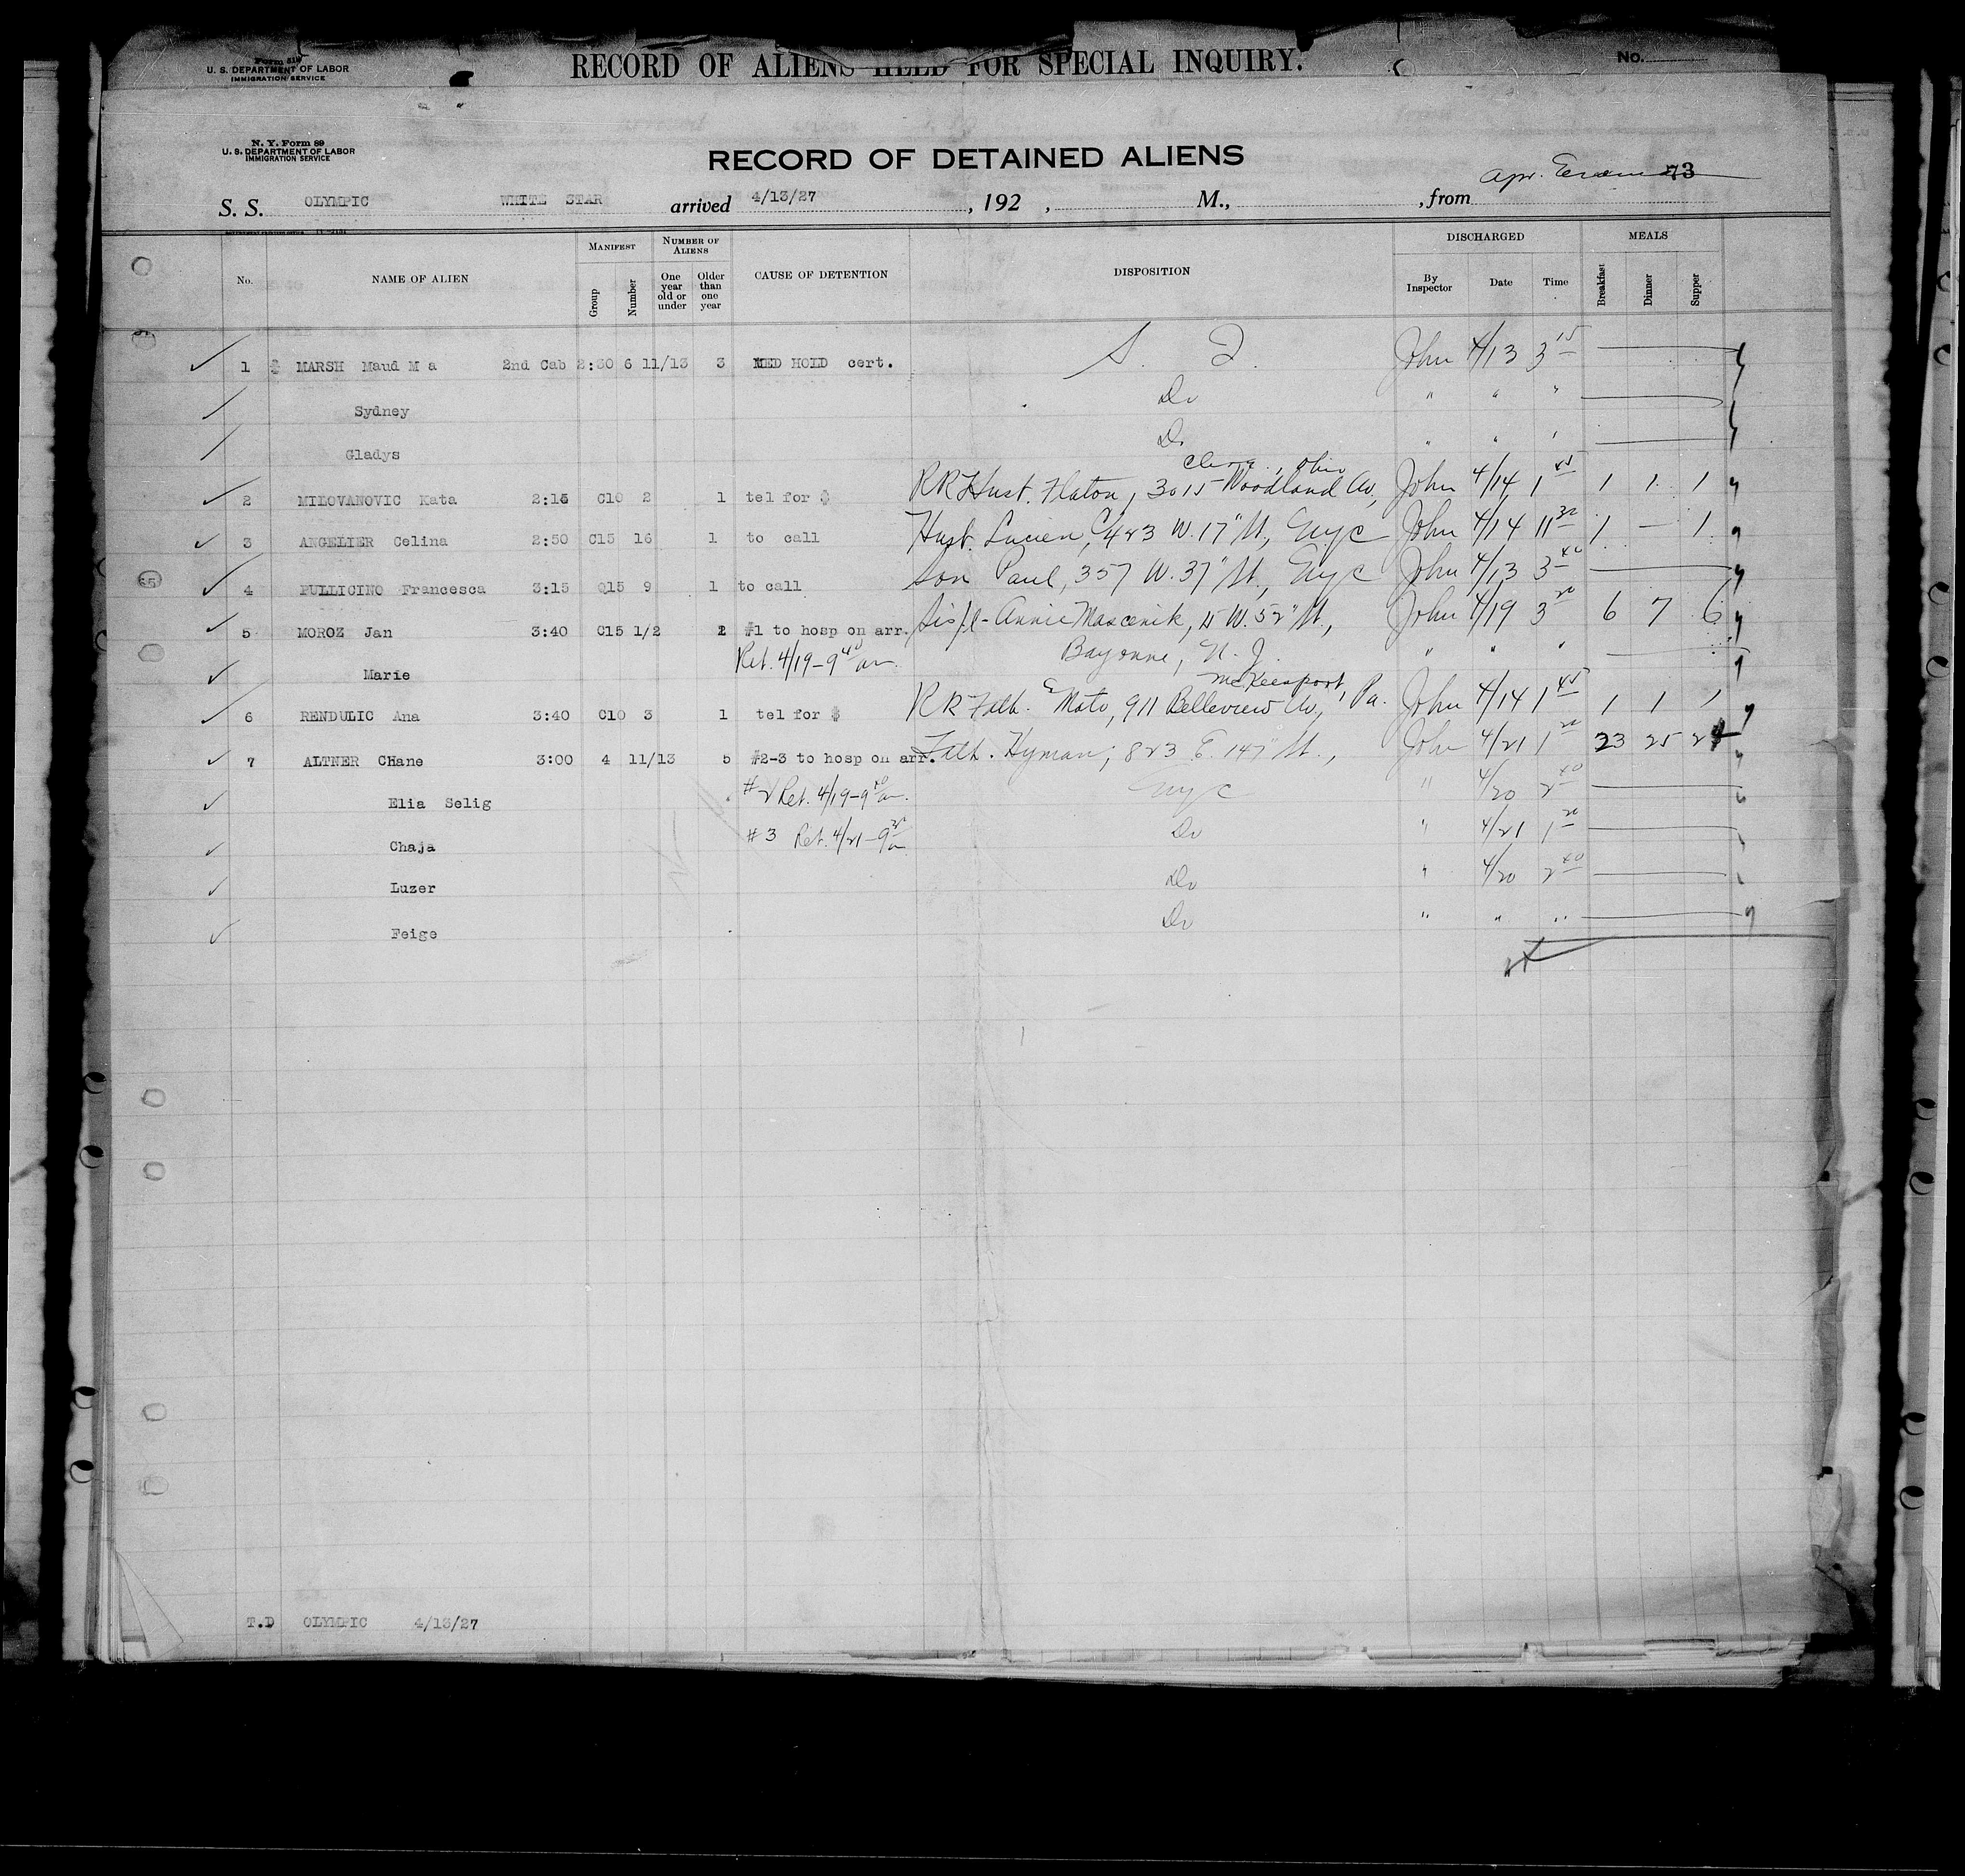 Form 519
U. S. DEPARTMENT OF LABOR
IMMIGRATION SERVICE
RECORD OF ALIENS HELD FOR SPECIAL INQUIRY.
No.
N. Y. Form 89
U. S. DEPARTMENT OF LABOR
IMMIGRATION SERVICE
RECORD OF DETAINED ALIENS
73
S. S. OLYMPIC WHITE STAR arrived 4/13/27, 192 , M., , from
No. NAME OF ALIEN MANIFEST Group Number NUMBER OF ALIENS One year old or under Older than one year CAUSE OF DETENTION DISPOSITION DISCHARGED By Inspector Date Time MEALS Breakfast Dinner Supper
1 MARSH Maud M a 2nd Cab 2:30 6 11/13 3 MED HOLD cert. S. I. John 4/13 3 15
Sydney Do " " "
Gladys Do " " "
Ohio
2 MILOVANOVIC Kata 2:15 C10 2 1 tel for $ RR Husb. Flaton, 3015 Woodland Av, John 4/14 1 45 1 1 1
3 ANGELIER Celina 2:50 C15 16 1 to call Husb. Lucien, 423 W. 17" St., NYC John 4/14 11 30 1 — 1
4 PULLICINO Francesca 3:15 Q15 9 1 to call Son Paul, 357 W. 37" St., NYC John 4/13 3 40
5 MOROZ Jan 3:40 C15 1/2 2 #1 to hosp on arr. Annie Mascenik, W. 52" St., John 4/19 3 20 6 7 6
Marie Ret. 4/19-9 40 am. Bayonne, N. J. " " "
McKeesport, Pa.
6 RENDULIC Ana 3:40 C10 3 1 tel for $ RR Fath. Mato, 911 Belleview Av, John 4/14 1 45 1 1 1
7 ALTNER CHane 3:00 4 11/13 5 #2-3 to hosp on arr. Fath. Hyman, 823 E. 147" St., John 4/21 1 20 23 25 24
Elia Selig #2 Ret. 4/19-9 40 am. NYC " 4/20 2 40
Chaja #3 Ret. 4/21-9 30 am Do " 4/21 1 20
Luzer Do " 4/20 2 40
Feige Do " " "
T.D OLYMPIC 4/13/27